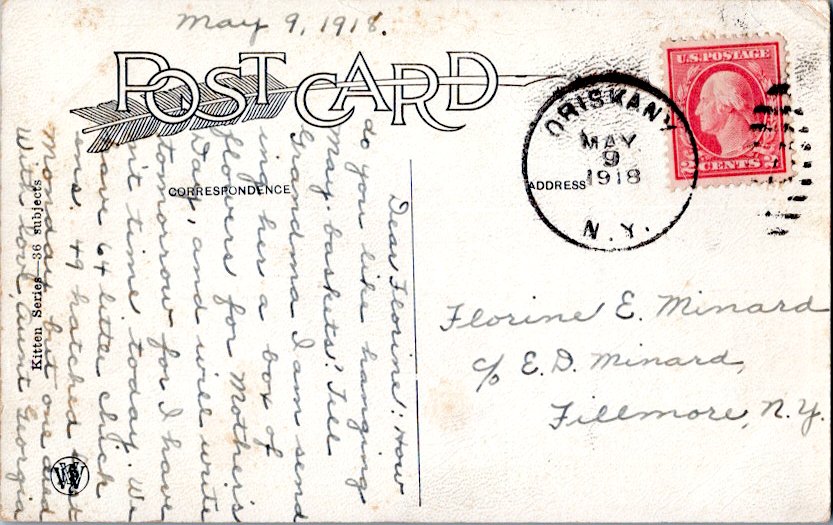 May 9, 1918.
POST CARD
CORRESPONDENCE
ADDRESS
ORISKANY
MAY
9
1918
N.Y.
U.S. POSTAGE
2 CENTS 2
Dear Florine: How
do you like hanging
May baskets? Tell
Grandma I am send
ing her a box of
flowers for Mother's
Day, and will write
tomorrow for I have
n't time today. We
have 64 little chick
ens. 49 hatched last
Monday but one died
With love, Aunt Georgia
Florine E. Minard
c/o E.D. Minard,
Fillmore, N.Y.
Kitten Series—36 subjects